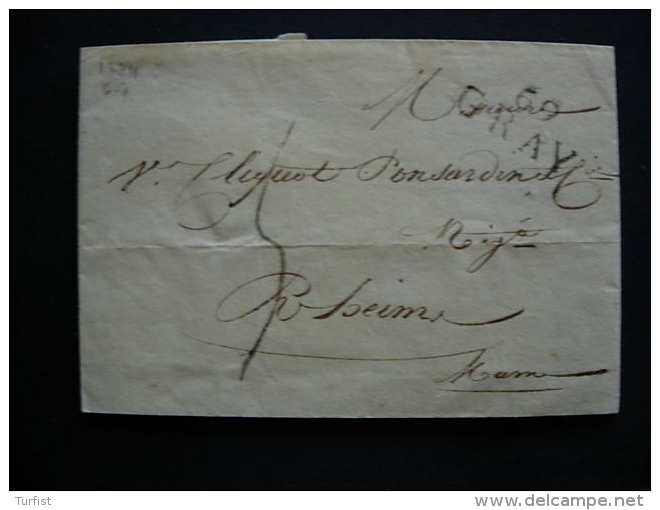 Messieurs
69
GRAY
Ve. Cliquot Ponsardin & Cie
Négts
Rheims
Marne
5
Turfist
www.delcampe.net